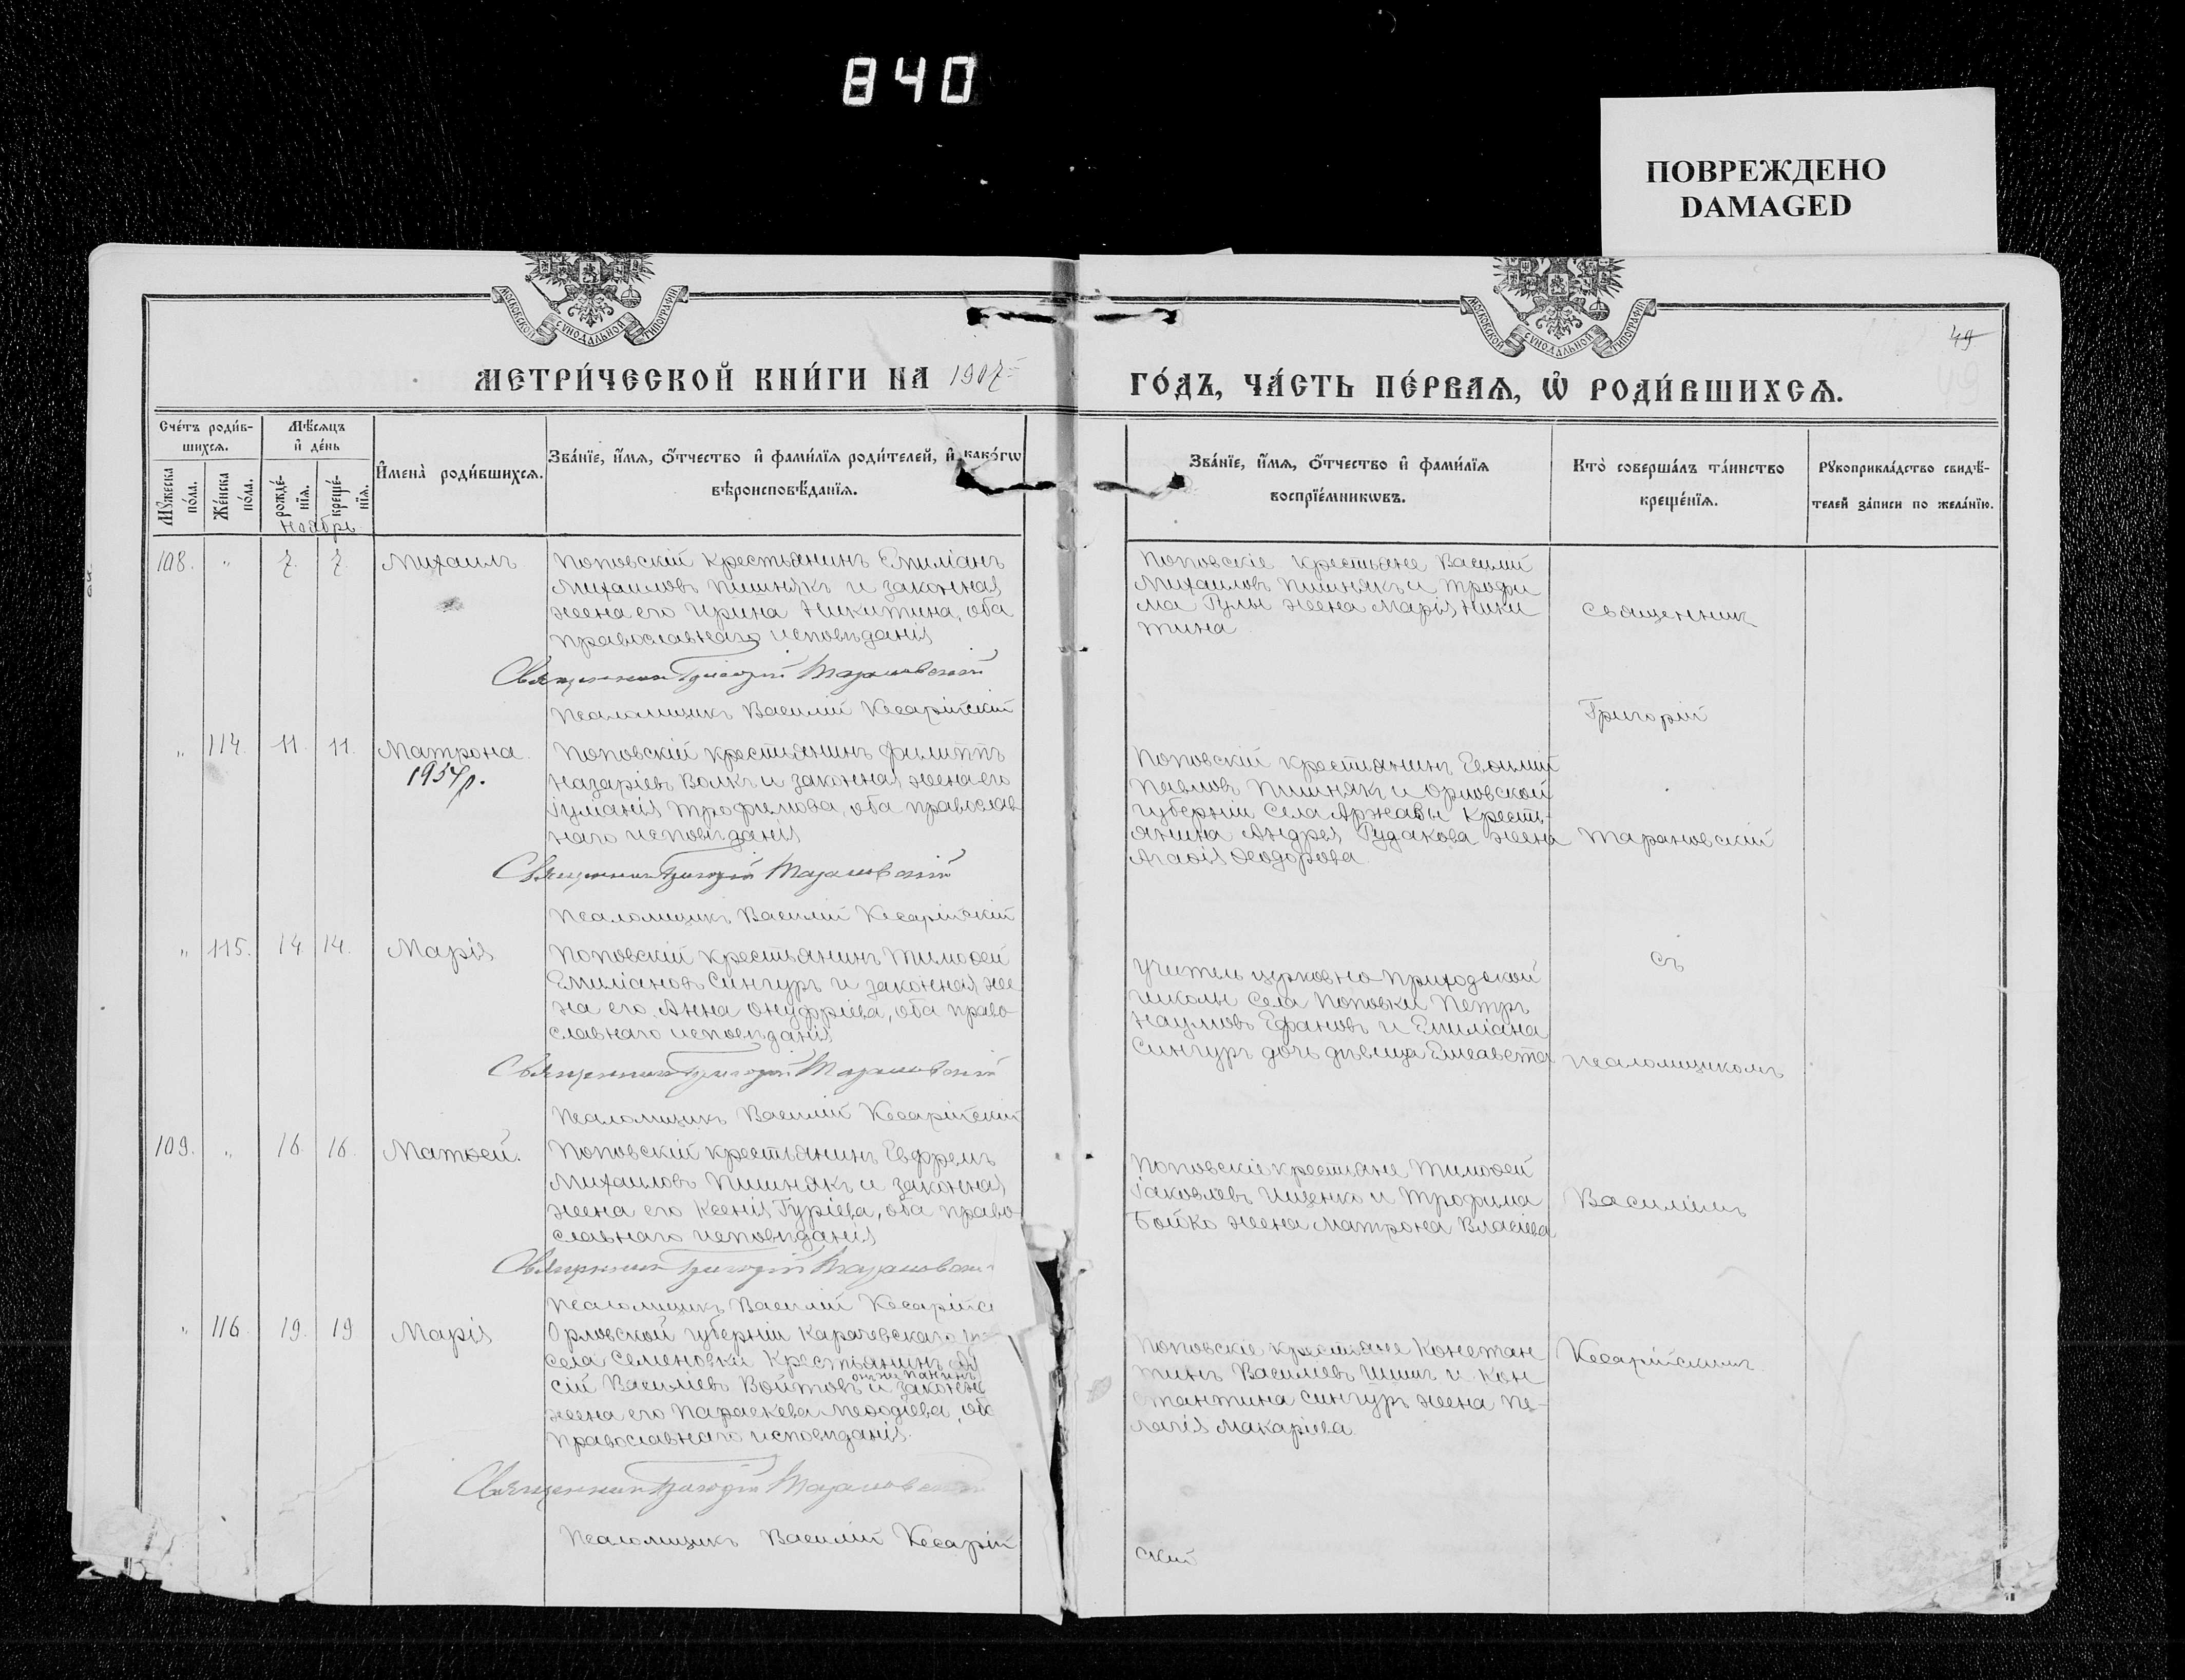 840
ПОВРЕЖДЕНО
DAMAGED
МОСКОВСКОЙ СѴНОДАЛЬНОЙ ТИПОГРАФІИ
МОСКОВСКОЙ СѴНОДАЛЬНОЙ ТИПОГРАФІИ
49
МЕТРИ́ЧЕСКОЙ КНИ́ГИ НА 1907 ГО́ДЪ, ЧА́СТЬ ПЕ́РВАѦ, Ѡ҆ РОДИ́ВШИХСѦ.
Сче́тъ роди́в-
шихсѧ.
Мѣ́сѧцъ
и҆ де́нь
Мꙋ́жеска по́ла.
Же́нска по́ла.
рожде́-
нїѧ.
креще́-
нїѧ.
И҆мена̀ роди́вшихсѧ.
Зва́нїе, и҆́мѧ, ѻ҆́тчество и҆ фами́лїѧ роди́телей, и҆ како́гѡ
вѣроисповѣ́данїѧ.
Зва́нїе, и҆́мѧ, ѻ҆́тчество и҆ фами́лїѧ
воспрїе́мникѡвъ.
Кто̀ соверша́лъ та́инство
креще́нїѧ.
Рꙋкоприкла́дство свидѣ́-
телей за́писи по жела́нїю.
Ноябрь
108. " 7. 7. Михаилъ
Поповскій крестьянинъ Емиліанъ
Михаиловъ Пишнякъ и законная
жена его Ирина Никитина, оба
православнаго исповѣданія
Священникъ Григорій Тарановскій
Псаломщикъ Василій Кесарійскій
Поповскіе крестьяне Василій
Михаиловъ Пишнякъ и Трофи
ма Гулы жена Марія Ники
тина
Священникъ
Григорій
" 114. 11. 11. Матрона
1957р.
Поповскій крестьянинъ Филиппъ
Назаріевъ Волкъ и законная жена его
Іуліанія Трофимова, оба православ
наго исповѣданія
Священникъ Григорій Тарановскій
Псаломщикъ Василій Кесарійскій
Поповскій крестьянинъ Евѳимій
Павловъ Пишнякъ и Орловской
губерніи села Аржавы кресть-
янина Андрея Рудакова жена
Агаѳія Ѳеодорова
Тарановскій
" 115. 14. 14. Марія
Поповскій крестьянинъ Тимоѳей
Емиліановъ Сингуръ и законная же
на его Анна Онуфріева, оба право
славнаго исповѣданія
Священникъ Григорій Тарановскій
Псаломщикъ Василій Кесарійскій
съ
Учитель церковно-приходской
школы села Поповки Петръ
Наумовъ Ефановъ и Емиліана
Сингуръ дочь дѣвица Елисавета
псаломщикомъ
109. " 16. 16. Матѳей.
Поповскій крестьянинъ Евфремъ
Михаиловъ Пишнякъ и законная
жена его Ксенія Гуріева, оба право
славнаго исповѣданія
Священникъ Григорій Тарановскі
Псаломщикъ Василій Кесарійс
Поповскіе крестьяне Тимоѳей
Іаковлевъ Ищенко и Трофима
Бойко жена Матрона Власіева
Василіемъ
" 116 19. 19 Марія
Орловской губерніи Карачевскаго
села Семеновки крестьянинъ
онъ же Панинъ
сій Василіевъ Войтовъ и законн
жена его Параскева Меѳодіева, оба
православнаго исповѣданія.
Священникъ Григорій Тарановскій
Псаломщикъ Василій Кесарій
ский
Поповскіе крестьяне Констан
тинъ Василіевъ Шишъ и Кон
стантина Сингуръ жена Пе-
лагія Макаріева
Кесарійскимъ